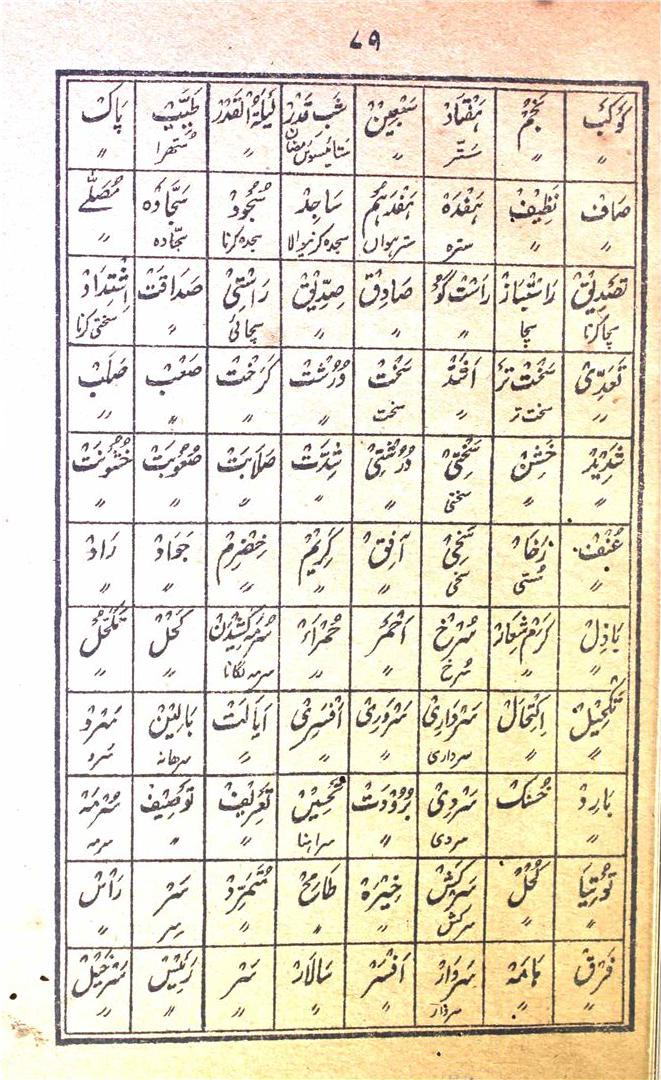 ٧٩
كَوْكَبْ نَجْمْ ہَفْتَادْ سَبْعِيْنْ شَبِ قَدْرْ لَيْلَةُ الْقَدْرْ طَيِّبْ پَاکْ
〃 〃 ستّر 〃 ستائیسویں رمضان 〃 ستھرا 〃
صَافْ نَظِیْفْ ہَفْدَہْ ہَفْدَہُمْ سَاجِدْ سُجُوْدْ سَجَّادَہْ مُصَلّٰے
〃 〃 سترہ سترہواں سجدہ کرنیوالا سجدہ کرنا سجّادہ 〃
تَصْدِیْقْ رَاسْتْبَازْ رَاسْتْ گُوْ صَادِقْ صِدِّیْقْ رَاسْتِیْ صَدَاقَتْ اِشْتِدَادْ
سچا کرنا سچا 〃 〃 〃 سچائی 〃 سختی کرنا
تَعَدِّیْ سَخْتْ تَرْ اَشَدّْ سَخْتْ دُرُشْتْ کَرَخْتْ صَعْبْ صَلْبْ
〃 سخت تر 〃 سخت 〃 〃 〃 〃
شَدِیْدْ خَشِنْ سَخْتِیْ دُرُشْتِیْ شِدَّتْ صَلَابَتْ صُعُوْبَتْ خُشُوْنَتْ
〃 〃 سختی 〃 〃 〃 〃 〃
عُنْفْ سَخِیْ کَرِیْمْ خِضْرِمْ جَوَادْ رَادْ
〃 سخی 〃 〃 〃 〃 〃
بَاذِلْ کَرَمْ شِعَارْ سُرْخْ اَحْمَرْ حُمْرَاءْ سُرْمَہ کَشِیْدَنْ کَحْلْ تَکَحُّلْ
〃 〃 سُرخ 〃 〃 سرمہ لگانا 〃 〃
تَکْحِیْلْ اِکْتِحَالْ سَرْدَارِیْ سَرْوَرِیْ اَفْسَرِیْ اَیَالَتْ بَالِیْنْ سَرْدْ
〃 〃 سرداری 〃 〃 〃 سرھانہ سرد
بَارِدْ خُنُکْ سَرْدِیْ بُرُوْدَتْ تَحْسِیْنْ تَعْرِیْفْ تَوْصِیْفْ سُرْمَہْ
〃 〃 سردی 〃 سراہنا 〃 〃 سرمہ
تُوْتِیَا کُحْلْ سَرْکَشْ خِیْرَہْ طَامِحْ مُتَمَرِّدْ سَرْ رَأْسْ
〃 〃 سرکش 〃 〃 〃 سِر 〃
فَرْقْ ہَامَہْ سَرْدَارْ اَفْسَرْ سَالَارْ سَرْ رَئِیْسْ سَرْخَیْلْ
〃 〃 سردار 〃 〃 〃 〃 〃